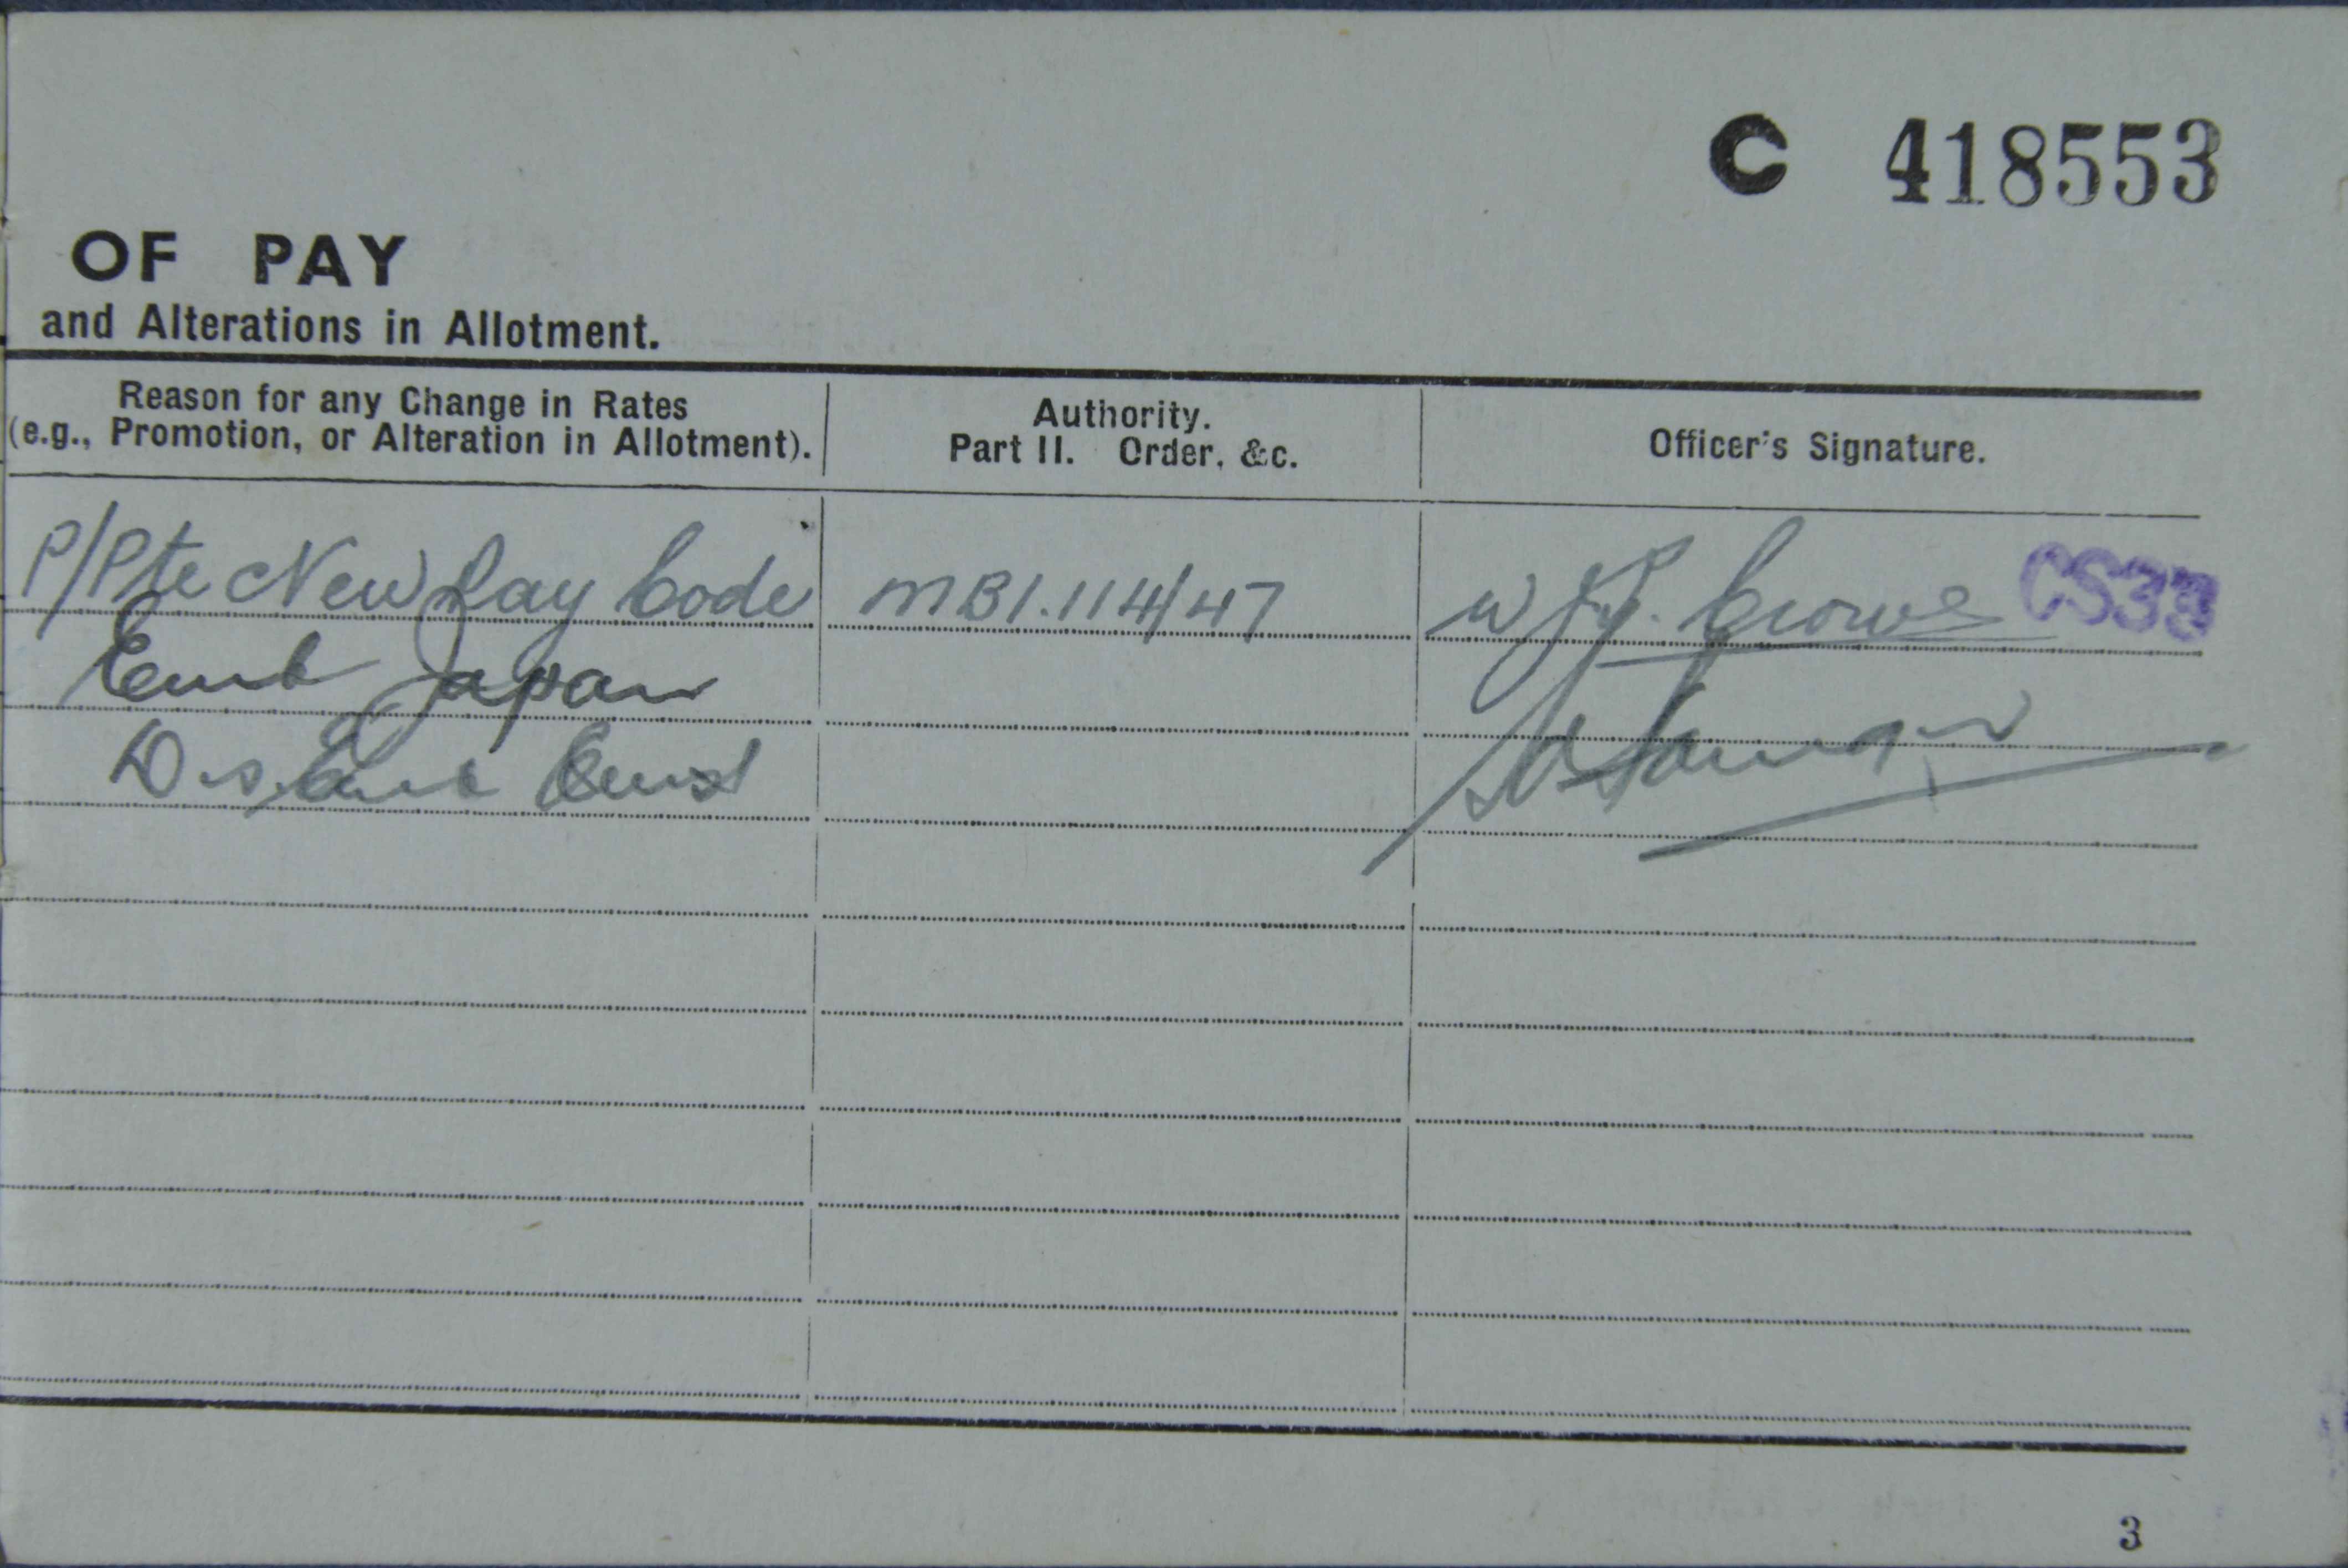 C 418553
OF PAY
and Alterations in Allotment.
Reason for any Change in Rates
(e.g., Promotion, or Alteration in Allotment).
Authority.
Part II. Order, &c.
Officer's Signature.
P/Pte New Pay Code MBI.114/47 W Crowe CS33
Emb Japan
Disemb Aust
3